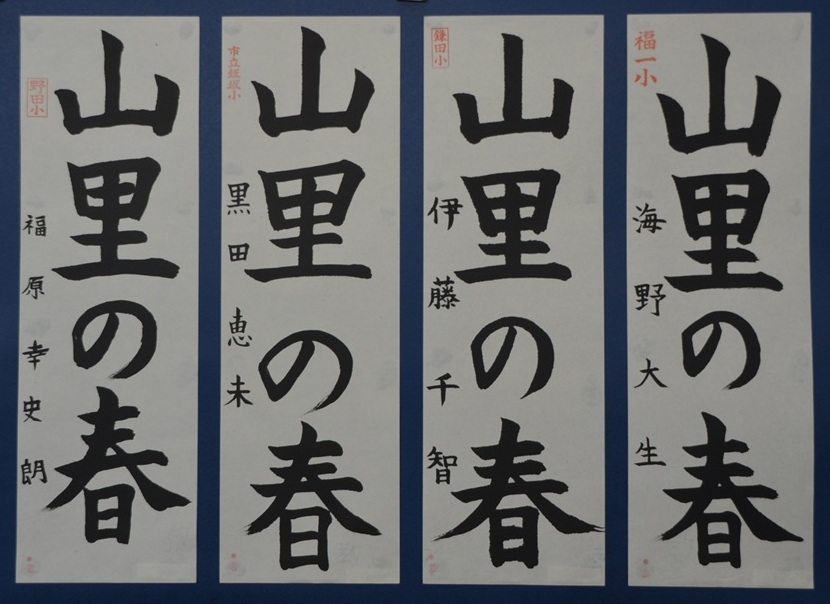 福一小
山里の春
海野大生
鎌田小
山里の春
伊藤千智
山里の春
黒田恵未
野田小
山里の春
福原幸史朗